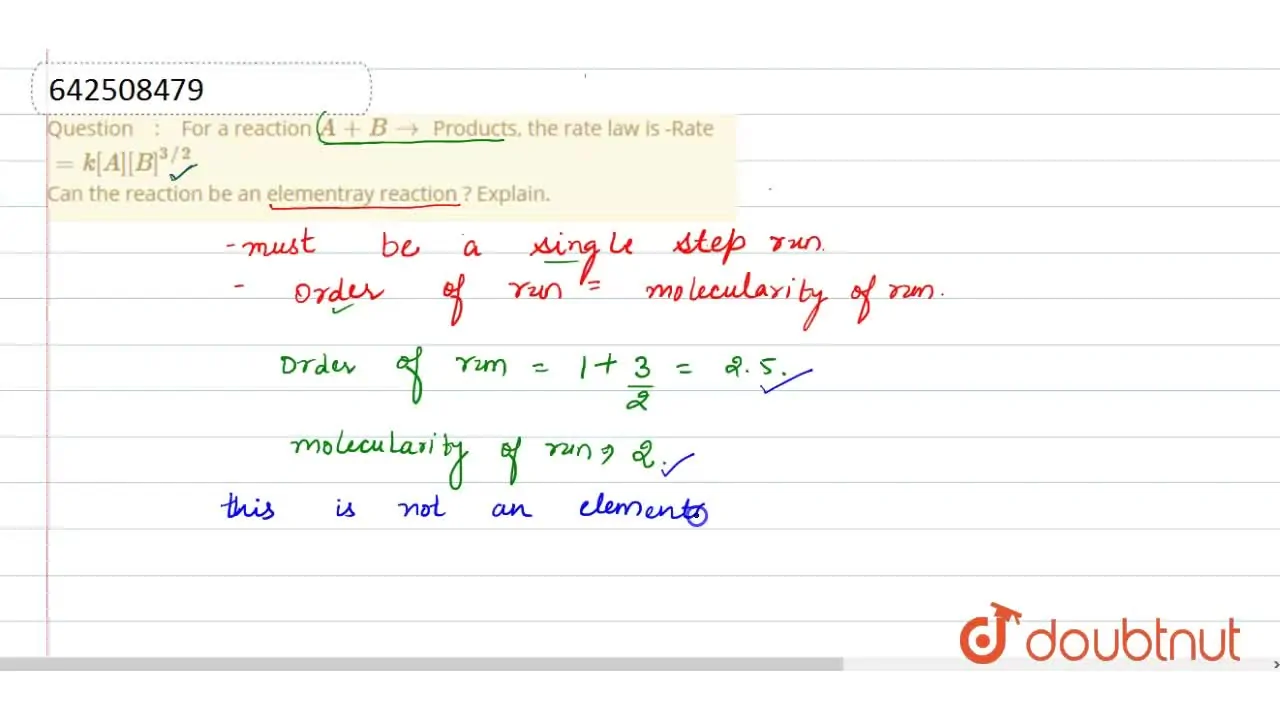 642508479
Question : For a reaction A + B → Products, the rate law is -Rate
= k[A][B]^{3/2}
Can the reaction be an elementray reaction ? Explain.
- must be a single step rxn.
- Order of rxn = molecularity of rxn.
Order of rxn = 1 + 3/2 = 2.5.
molecularity of rxn ⇒ 2.
this is not an elementr
doubtnut